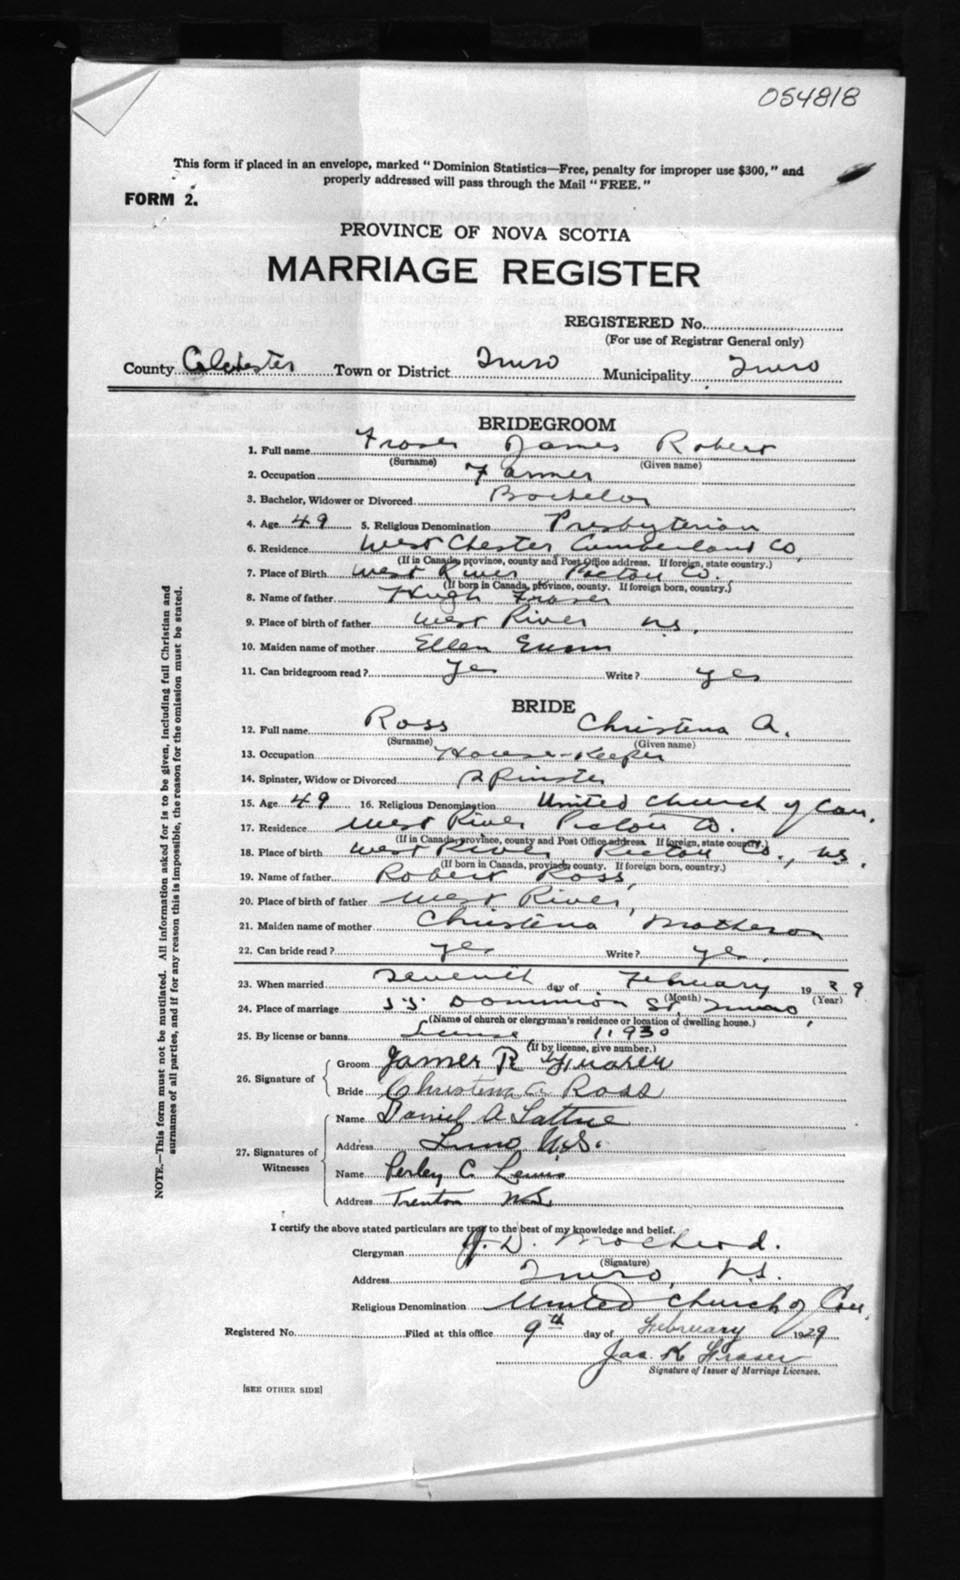 054818
This form if placed in an envelope, marked "Dominion Statistics—Free, penalty for improper use $300," and
properly addressed will pass through the Mail "FREE."
FORM 2.
PROVINCE OF NOVA SCOTIA
MARRIAGE REGISTER
REGISTERED No.
(For use of Registrar General only)
County Colchester Town or District Truro Municipality Truro
BRIDEGROOM
1. Full name Fraser James Robert
(Surname) (Given name)
2. Occupation Farmer
3. Bachelor, Widower or Divorced Bachelor
4. Age 49 5. Religious Denomination Presbyterian
6. Residence West Chester Cumberland Co,
(If in Canada, province, county and Post Office address. If foreign, state country.)
7. Place of Birth West River Pictou Co.
(If born in Canada, province, county. If foreign born, country.)
8. Name of father Hugh Fraser
9. Place of birth of father West River N.S.
10. Maiden name of mother Ellen
11. Can bridegroom read? Yes Write? yes
BRIDE
12. Full name Ross Christena A.
(Surname) (Given name)
13. Occupation House-Keeper
14. Spinster, Widow or Divorced Spinster
15. Age 49 16. Religious Denomination United Church of Can.
17. Residence West River Pictou Co.
(If in Canada, province, county and Post Office address. If foreign, state country.)
18. Place of birth West River Pictou Co., N.S.
(If born in Canada, province, county. If foreign born, country.)
19. Name of father Robert Ross,
20. Place of birth of father West River,
21. Maiden name of mother Christena Matheson
22. Can bride read? yes Write? yes.
23. When married Seventh day of February 1929
(Month) (Year)
24. Place of marriage Dominion St, Truro,
(Name of church or clergyman's residence or location of dwelling house.)
25. By license or banns License 11930
(If by license, give number.)
26. Signature of Groom James R Fraser
Bride Christena A Ross
27. Signatures of Witnesses Name Daniel A
Address Truro N.S.
Name Perley C. Lewis
Address Trenton N.S.
I certify the above stated particulars are true to the best of my knowledge and belief.
Clergyman J. D. MacLeod.
(Signature)
Address Truro, N.S.
Religious Denomination United Church of Can.
Registered No. Filed at this office 9th day of February 1929
Jas K Fraser
Signature of Issuer of Marriage Licenses.
[SEE OTHER SIDE]
NOTE.—This form must not be mutilated. All information asked for is to be given, including full Christian and
surnames of all parties, and if for any reason this is impossible, the reason for the omission must be stated.